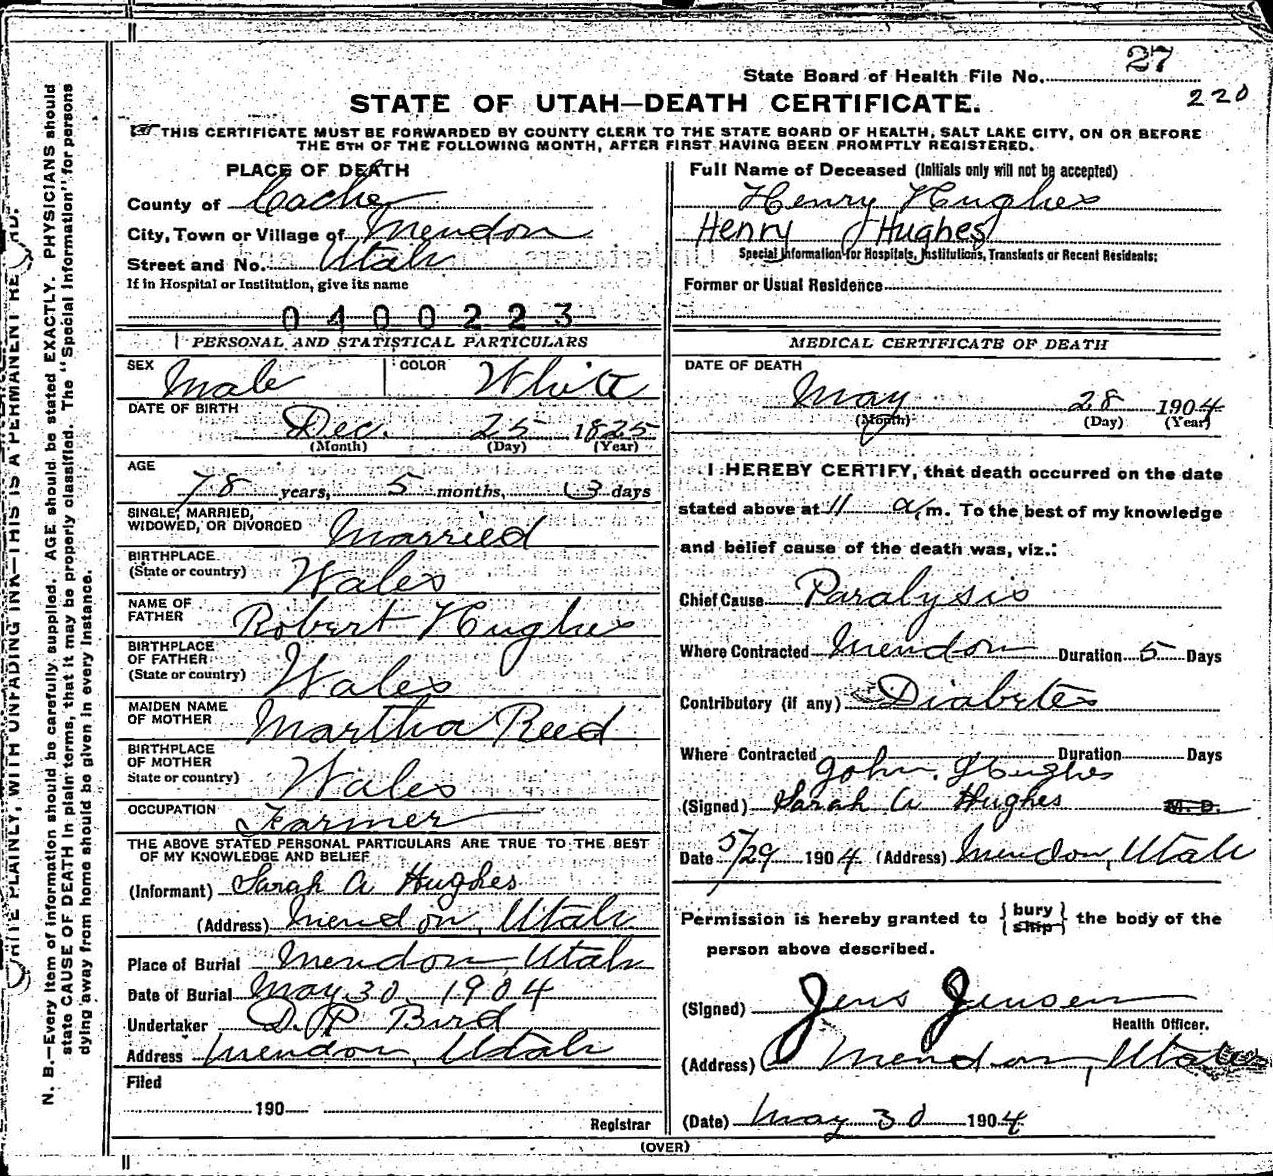 27
State Board of Health File No.
220
STATE OF UTAH—DEATH CERTIFICATE.
THIS CERTIFICATE MUST BE FORWARDED BY COUNTY CLERK TO THE STATE BOARD OF HEALTH, SALT LAKE CITY, ON OR BEFORE
THE 5TH OF THE FOLLOWING MONTH, AFTER FIRST HAVING BEEN PROMPTLY REGISTERED.
PLACE OF DEATH
County of Cache
City, Town or Village of Mendon
Street and No. Utah
If in Hospital or Institution, give its name
0400223
PERSONAL AND STATISTICAL PARTICULARS
SEX Male COLOR White
DATE OF BIRTH
Dec. 25 1825
(Month) (Day) (Year)
AGE
78 years, 5 months, 3 days
SINGLE, MARRIED,
WIDOWED, OR DIVORCED Married
BIRTHPLACE
(State or country) Wales
NAME OF
FATHER Robert Hughes
BIRTHPLACE
OF FATHER
(State or country) Wales
MAIDEN NAME
OF MOTHER Martha Reed
BIRTHPLACE
OF MOTHER
State or country) Wales
OCCUPATION Farmer
THE ABOVE STATED PERSONAL PARTICULARS ARE TRUE TO THE BEST
OF MY KNOWLEDGE AND BELIEF
(Informant) Sarah A Hughes
(Address) Mendon, Utah
Place of Burial Mendon, Utah
Date of Burial May 30, 1904
Undertaker D. P. Bird
Address Mendon, Utah
Filed
190
Registrar
Full Name of Deceased (Initials only will not be accepted)
Henry Hughes
Henry Hughes
Special Information for Hospitals, Institutions, Transients or Recent Residents:
Former or Usual Residence
MEDICAL CERTIFICATE OF DEATH
DATE OF DEATH
May 28 1904
(Month) (Day) (Year)
I HEREBY CERTIFY, that death occurred on the date
stated above at 11 a.m. To the best of my knowledge
and belief cause of the death was, viz.:
Chief Cause Paralysis
Where Contracted Mendon Duration 5 Days
Contributory (if any) Diabetes
Where Contracted Duration Days
John Hughes
(Signed) Sarah A Hughes M. D.
Date 5/29 1904 (Address) Mendon, Utah
Permission is hereby granted to {bury
ship} the body of the
person above described.
(Signed) Jens Jensen
Health Officer.
(Address) Mendon, Utah
(Date) May 30 1904
(OVER)
N. B.—Every item of information should be carefully supplied. AGE should be stated EXACTLY. PHYSICIANS should
state CAUSE OF DEATH in plain terms, that it may be properly classified. The "Special Information" for persons
dying away from home should be given in every instance.
PLAINLY, WITH UNFADING INK—THIS IS A PERMANENT